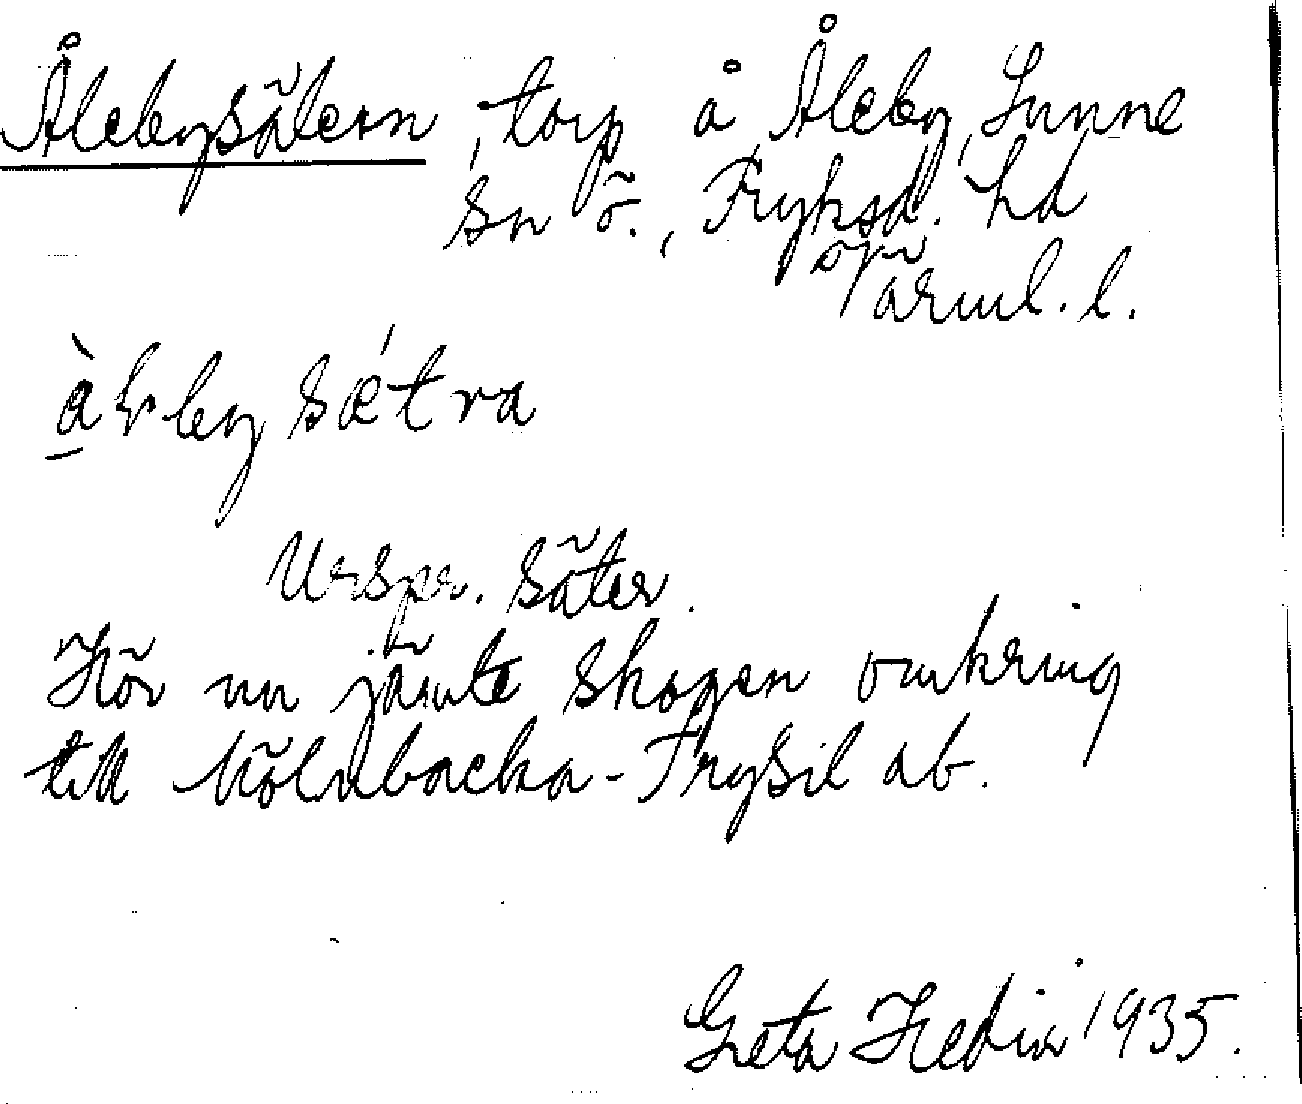 Ålebysätern, torp å Åleby, Sunne
sn ö., Fryksd. hd
Värml. l.
àɫbysǽtra
Urspr. säter.
Hör nu jämte skogen omkring
till Mölnbacka-Trysil ab.
Greta Hedin 1935.